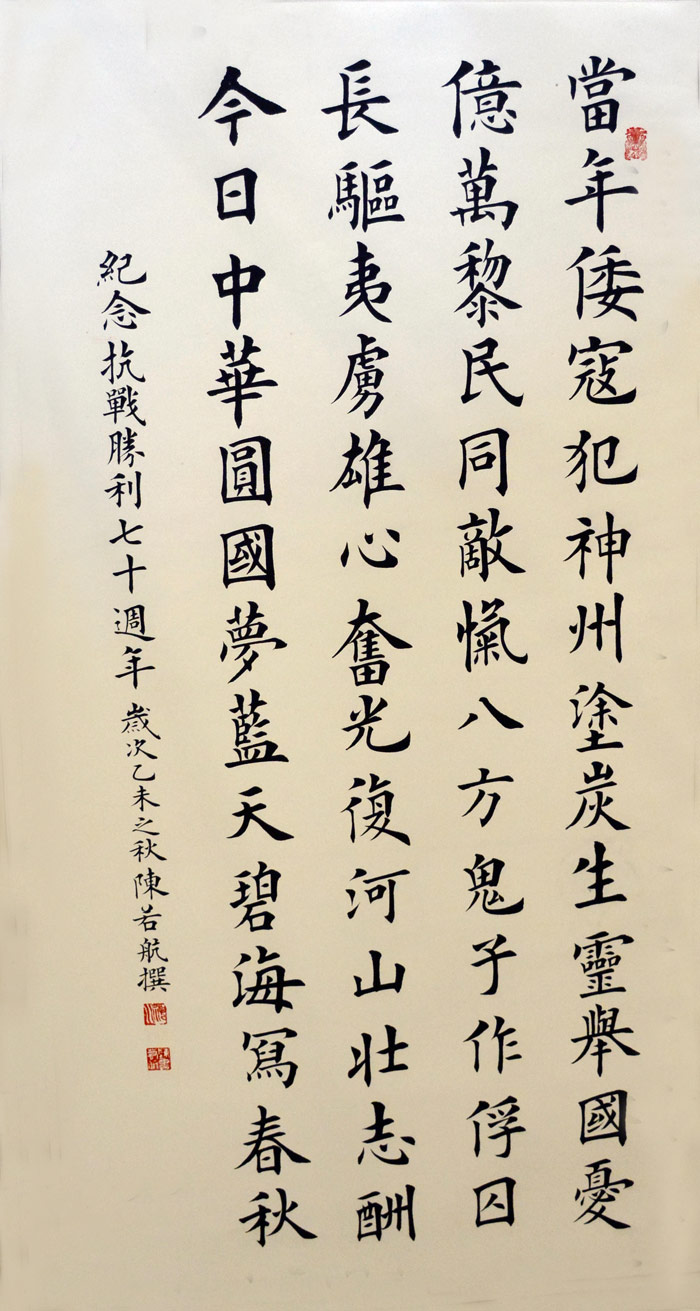 當年倭寇犯神州塗炭生靈舉國憂
億萬黎民同敵愾八方鬼子作俘囚
長驅夷虜雄心奮光復河山壯志酬
今日中華圓國夢藍天碧海寫春秋
紀念抗戰勝利七十週年 歲次乙未之秋陳若航撰